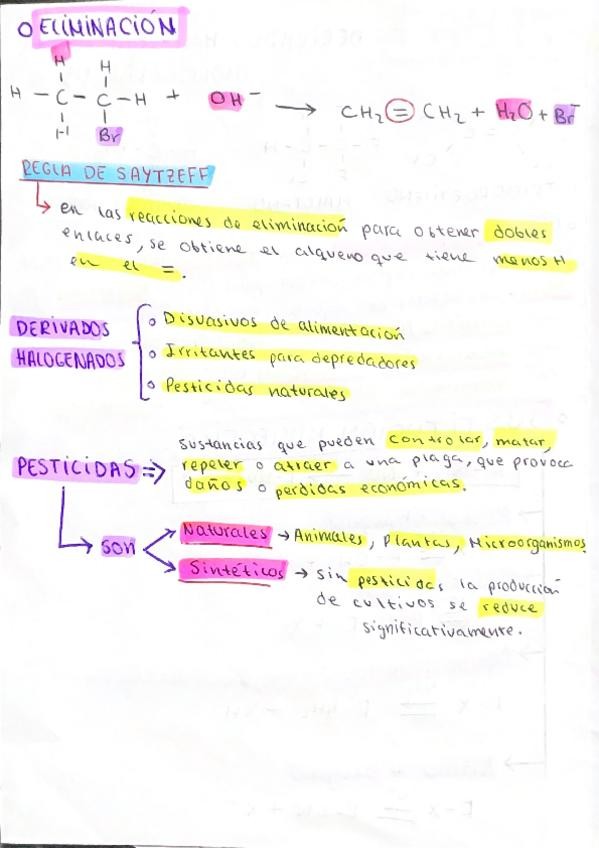 o ELIMINACIÓN
H H
H - C - C - H + OH⁻ → CH₂ = CH₂ + H₂O + Br⁻
H Br
REGLA DE SAYTZEFF
↳ en las reacciones de eliminación para obtener dobles
enlaces, se obtiene el alqueno que tiene menos H
en el =.
DERIVADOS
HALOGENADOS
o Disuasivos de alimentación
o Irritantes para depredadores
o Pesticidas naturales
PESTICIDAS ⇒
sustancias que pueden controlar, matar,
repeler o atraer a una plaga, que provoca
daños o perdidas económicas.
↳ son
Naturales → Animales, Plantas, Microorganismos
Sintéticos → sin pesticidas la producción
de cultivos se reduce
significativamente.